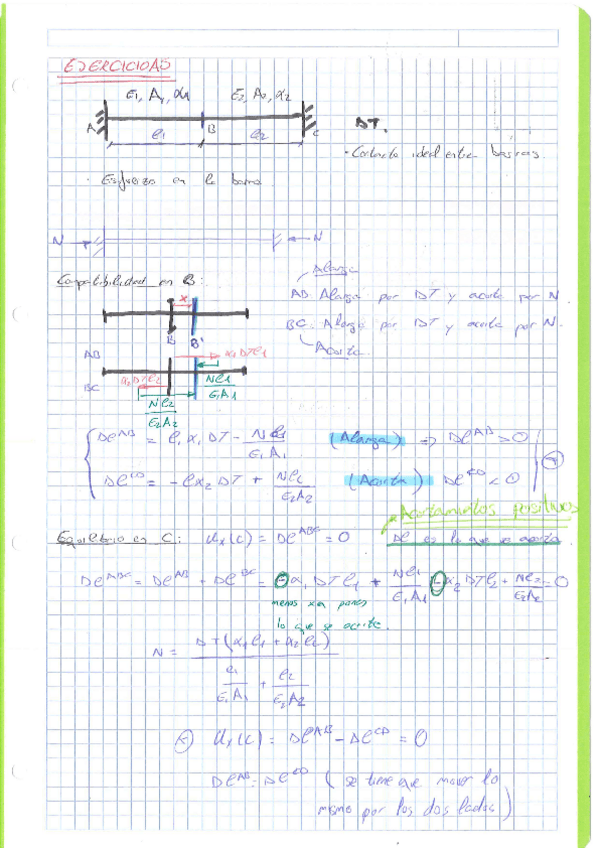 EJERCICIO AS
E1, A1, α1   E2, A2, α2
A   B   C
l1   l2
ΔT.
· Contacto ideal entre barras.
· Esfuerzo en la barra
N   N
Compatibilidad en B:
Alarga
AB: Alarga por ΔT y acorta por N
BC: Alarga por ΔT y acorta por N.
Acorta.
x
B   B'
AB   α1 ΔT l1
BC   α2 ΔT l2   N l1 / E1 A1
N l2 / E2 A2
Δl^AB = l1 α1 ΔT - N l1 / E1 A1   (Alarga) => Δl^AB > 0
Δl^CD = - l α2 ΔT + N l2 / E2 A2   (Acorta)   Δl^CD < 0
Acortamientos positivos
Equilibrio en C: Ux(C) = Δl^ABC = 0   Δl es lo que se acorta
Δl^ABC = Δl^AB + Δl^BC = - α1 ΔT l1 + N l1 / E1 A1 - α2 ΔT l2 + N l2 / E2 A2 = 0
menos xa poner
lo que se acorta.
N = ΔT (α1 l1 + α2 l2) / l1 / E1 A1 + l2 / E2 A2
Ux(C) = Δl^AB - Δl^CD = 0
Δl^AB = Δl^CD (se tiene que mover lo
mismo por los dos lados)